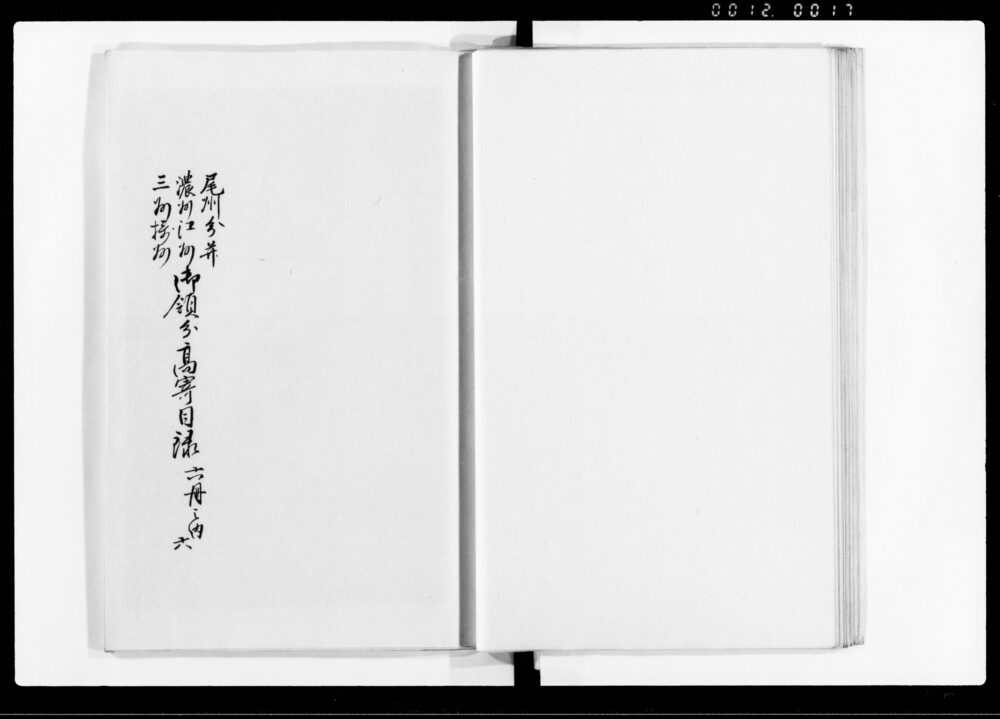 0012. 0017
尾州分并
濃州江州
三州摂州
御領分高寄目録
六冊之内
六